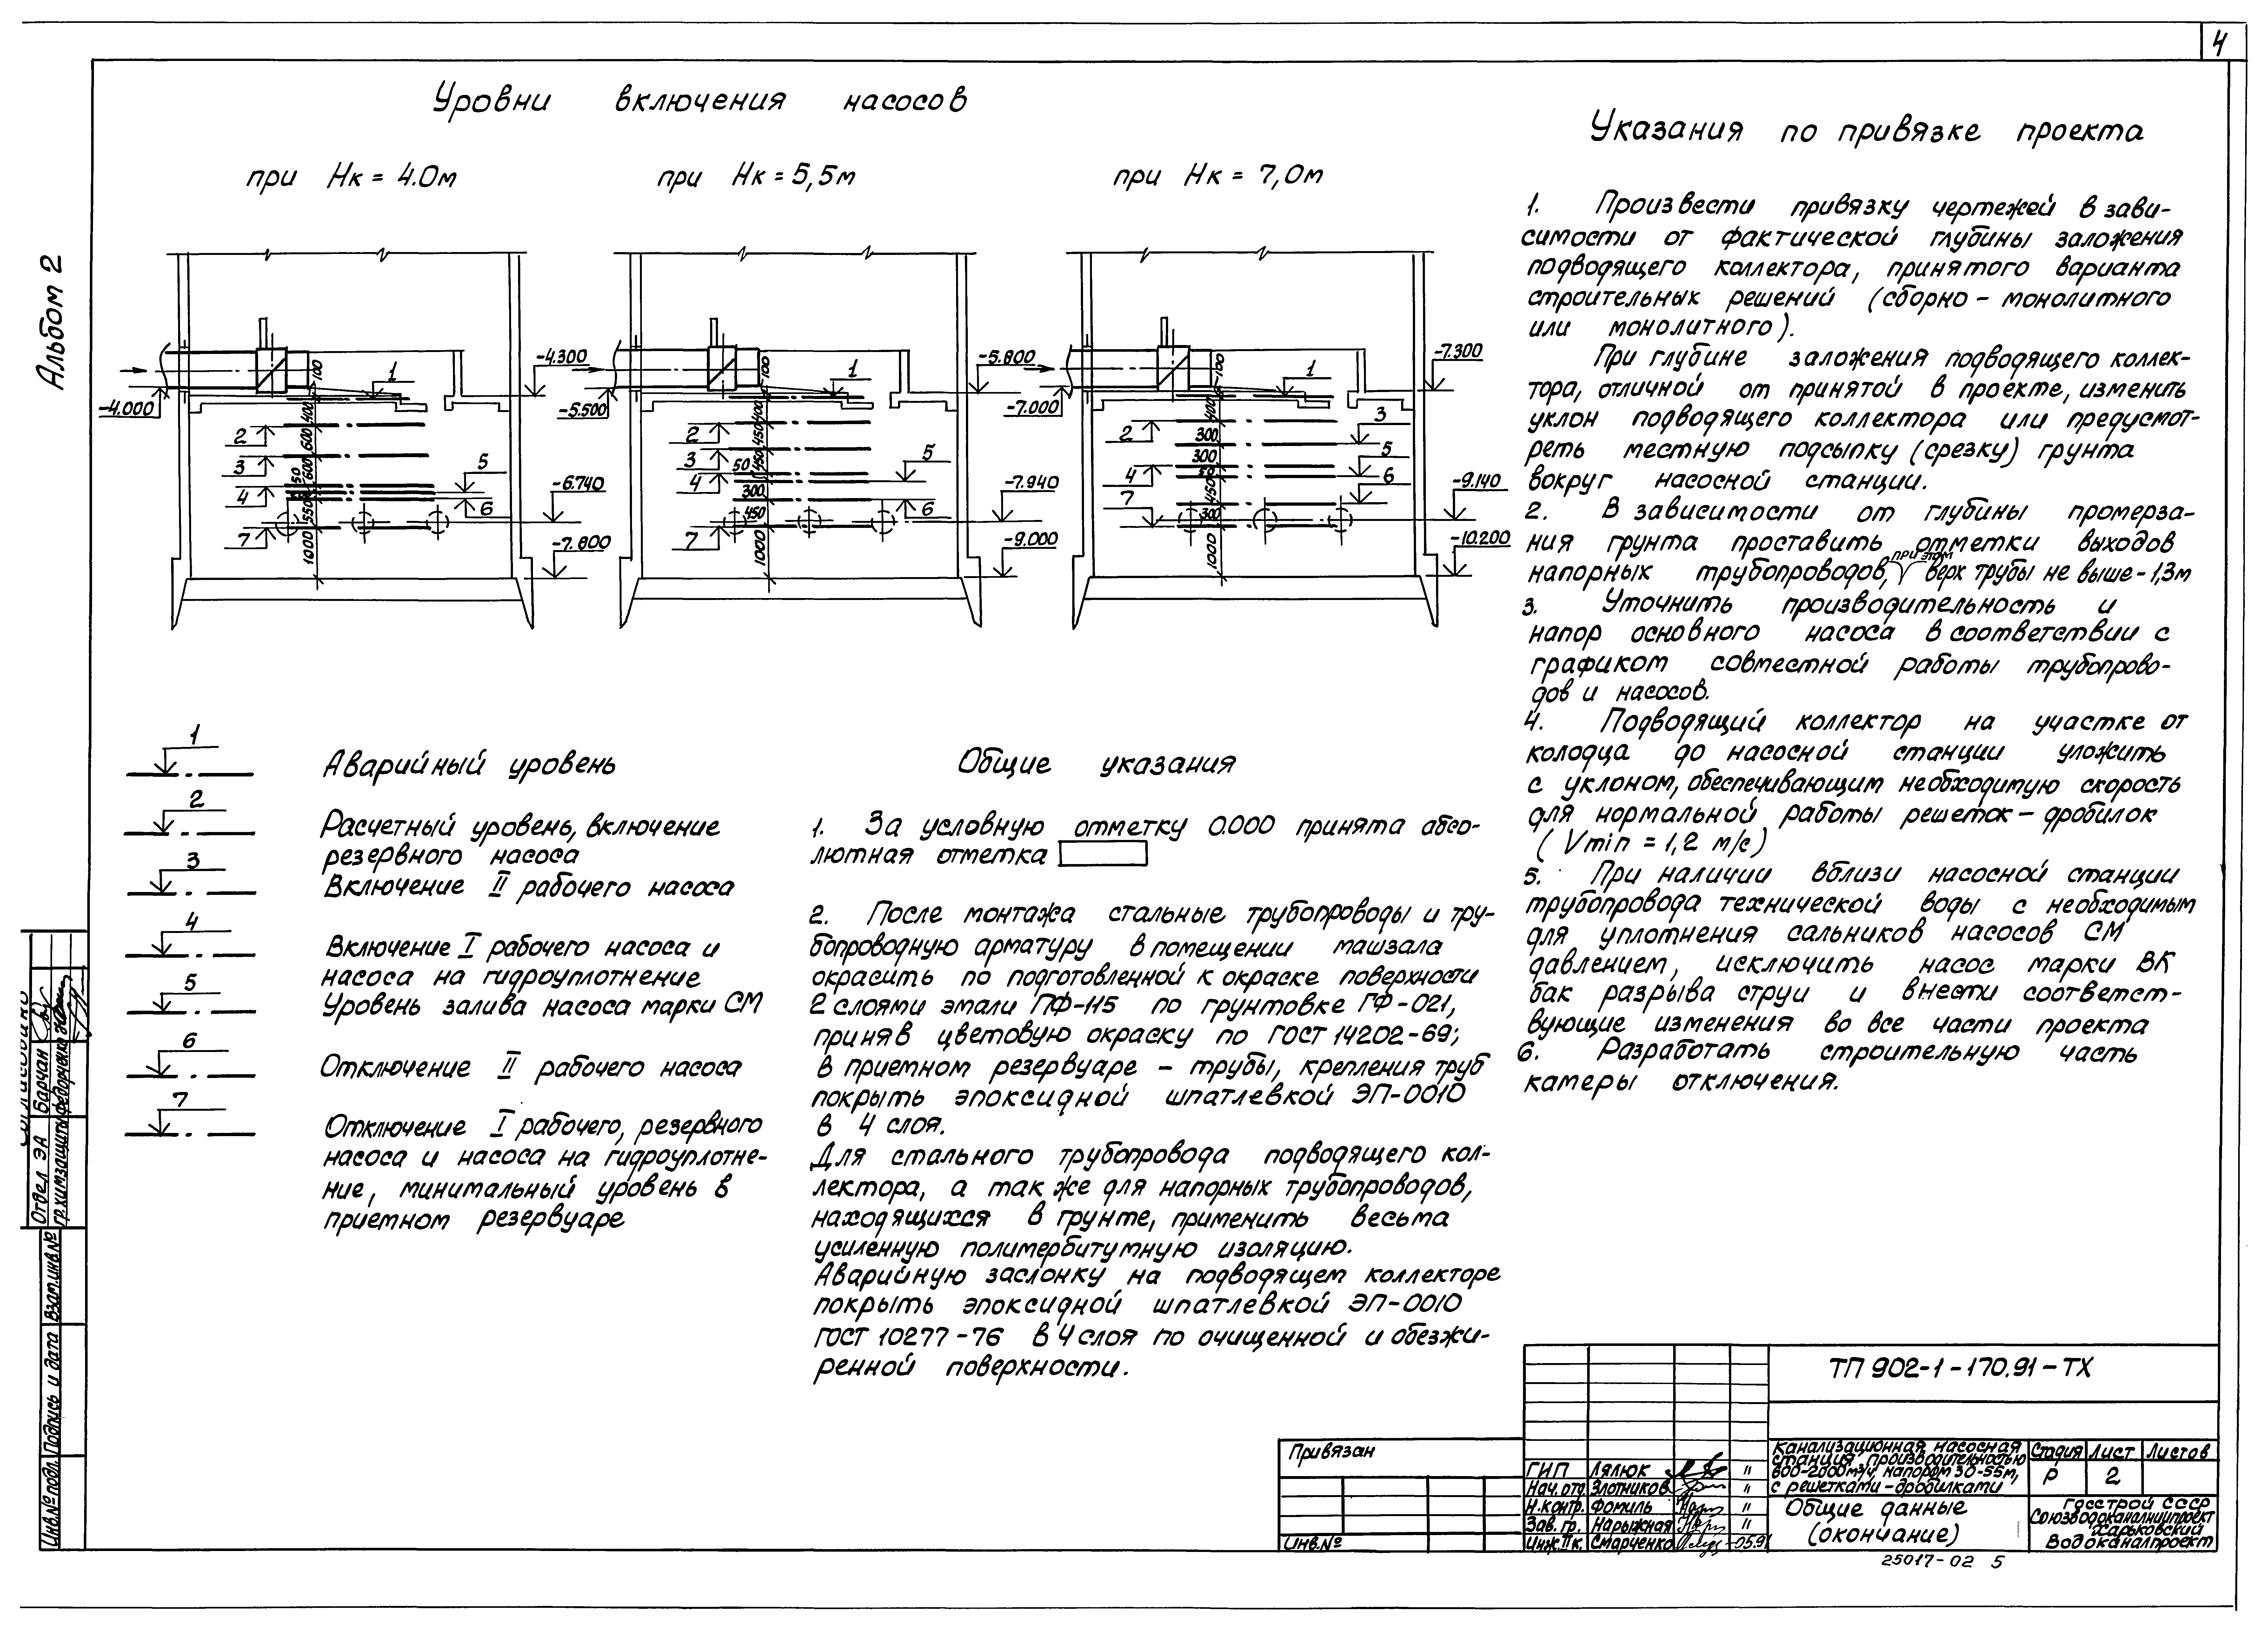 4
Альбом 2
Уровни включения насосов
при Нк = 4.0м
при Нк = 5,5м
при Нк = 7,0м
-4.000
-4.300
-6.740
-7.800
1
2
3
4
5
6
7
100
400
600
600
50
550
1000
-5.500
-5.800
-7.940
-9.000
1
2
3
4
5
6
7
100
400
450
450
50
300
450
1000
-7.000
-7.300
-9.140
-10.200
1
2
3
4
5
6
7
100
400
300
300
50
450
300
1000
1
Аварийный уровень
2
Расчетный уровень, включение
резервного насоса
3
Включение II рабочего насоса
4
Включение I рабочего насоса и
насоса на гидроуплотнение
5
Уровень залива насоса марки СМ
6
Отключение II рабочего насоса
7
Отключение I рабочего, резервного
насоса и насоса на гидроуплотне-
ние, минимальный уровень в
приемном резервуаре
Общие указания
1. За условную отметку 0.000 принята абсо-
лютная отметка
2. После монтажа стальные трубопроводы и тру-
бопроводную арматуру в помещении машзала
окрасить по подготовленной к окраске поверхности
2 слоями эмали ПФ-115 по грунтовке ГФ-021,
приняв цветовую окраску по ГОСТ 14202-69;
в приемном резервуаре - трубы, крепления труб
покрыть эпоксидной шпатлевкой ЭП-0010
в 4 слоя.
Для стального трубопровода подводящего кол-
лектора, а так же для напорных трубопроводов,
находящихся в грунте, применить весьма
усиленную полимербитумную изоляцию.
Аварийную заслонку на подводящем коллекторе
покрыть эпоксидной шпатлевкой ЭП-0010
ГОСТ 10277-76 в 4 слоя по очищенной и обезжи-
ренной поверхности.
Указания по привязке проекта
1. Произвести привязку чертежей в зави-
симости от фактической глубины заложения
подводящего коллектора, принятого варианта
строительных решений (сборно - монолитного
или монолитного).
При глубине заложения подводящего коллек-
тора, отличной от принятой в проекте, изменить
уклон подводящего коллектора или предусмот-
реть местную подсыпку (срезку) грунта
вокруг насосной станции.
2. В зависимости от глубины промерза-
ния грунта проставить отметки выходов
напорных трубопроводов, при этом верх трубы не выше - 1,3м
3. Уточнить производительность и
напор основного насоса в соответствии с
графиком совместной работы трубопрово-
дов и насосов.
4. Подводящий коллектор на участке от
колодца до насосной станции уложить
с уклоном, обеспечивающим необходимую скорость
для нормальной работы решеток - дробилок
(Vmin = 1,2 м/с)
5. При наличии вблизи насосной станции
трубопровода технической воды с необходимым
для уплотнения сальников насосов СМ
давлением, исключить насос марки ВК
бак разрыва струи и внести соответст-
вующие изменения во все части проекта
6. Разработать строительную часть
камеры отключения.
Согласовано
Отдел ЭА Барчан
гр.химзащиты Федорченко
Взам.инв.№
Подпись и дата
Инв.№ подл.
Привязан
Инв.№
ГИП Лялюк "
Нач. отд. Злотников "
Н.контр. Фомиль "
Зав. гр. Нарыжная "
Инж. II к. Смарченко 05.91
ТП 902-1-170.91-ТХ
Канализационная насосная
станция производительностью
800-2000м³/ч, напором 30-55м,
с решетками-дробилками
Стадия Лист Листов
Р 2
Общие данные
(окончание)
Госстрой СССР
Союзводоканалниипроект
Харьковский
Водоканалпроект
25017-02 5